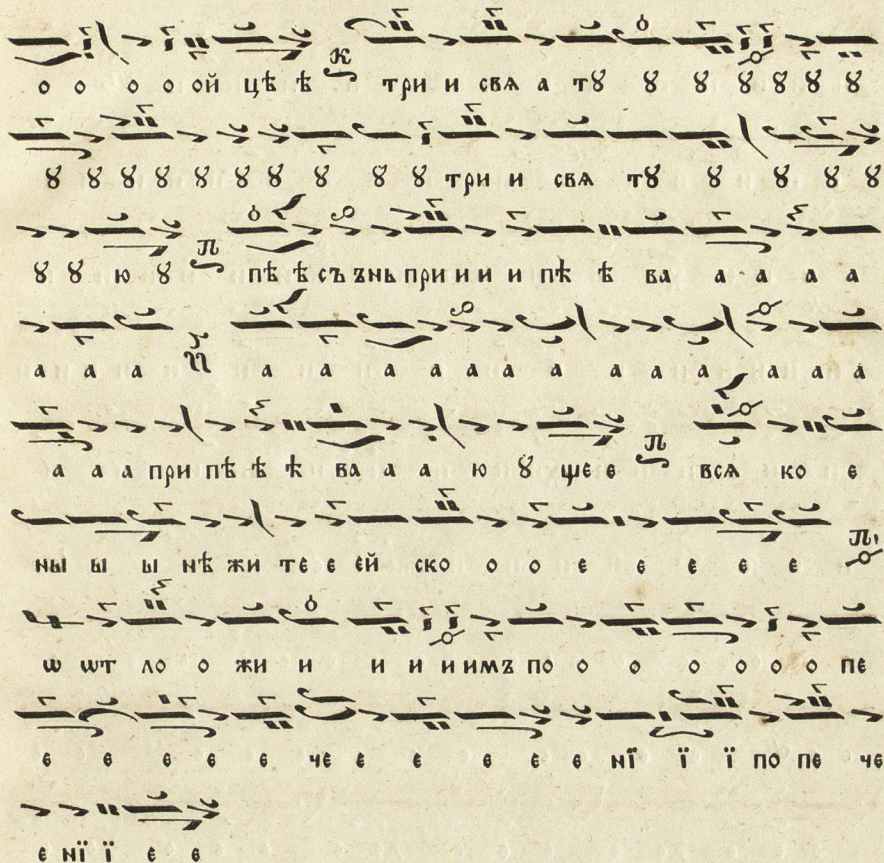 о о о о ой цѣ ѣ К три и свѧ а тꙋ ꙋ ꙋ ꙋ ꙋ ꙋ ꙋ
ꙋ ꙋ ꙋ ꙋ ꙋ ꙋ ꙋ ꙋ ꙋ ꙋ три и свѧ тꙋ ꙋ ꙋ ꙋ ꙋ
ꙋ ꙋ ю ꙋ П пѣ ѣ съ знь при и и и пѣ ѣ ва а а а а
а а а а а а а а а а а а а а а а
а а а при пѣ ѣ ѣ ва а а ю ꙋ ще е П всѧ ко е
ны ы ы нѣ жи те е ей ско о о е е е е е П
ѡ ѡт ло о жи и и и и имъ по о о о о о о пе
е е е е е че е е е е е нї ї ї по пе че
е нї ї е е